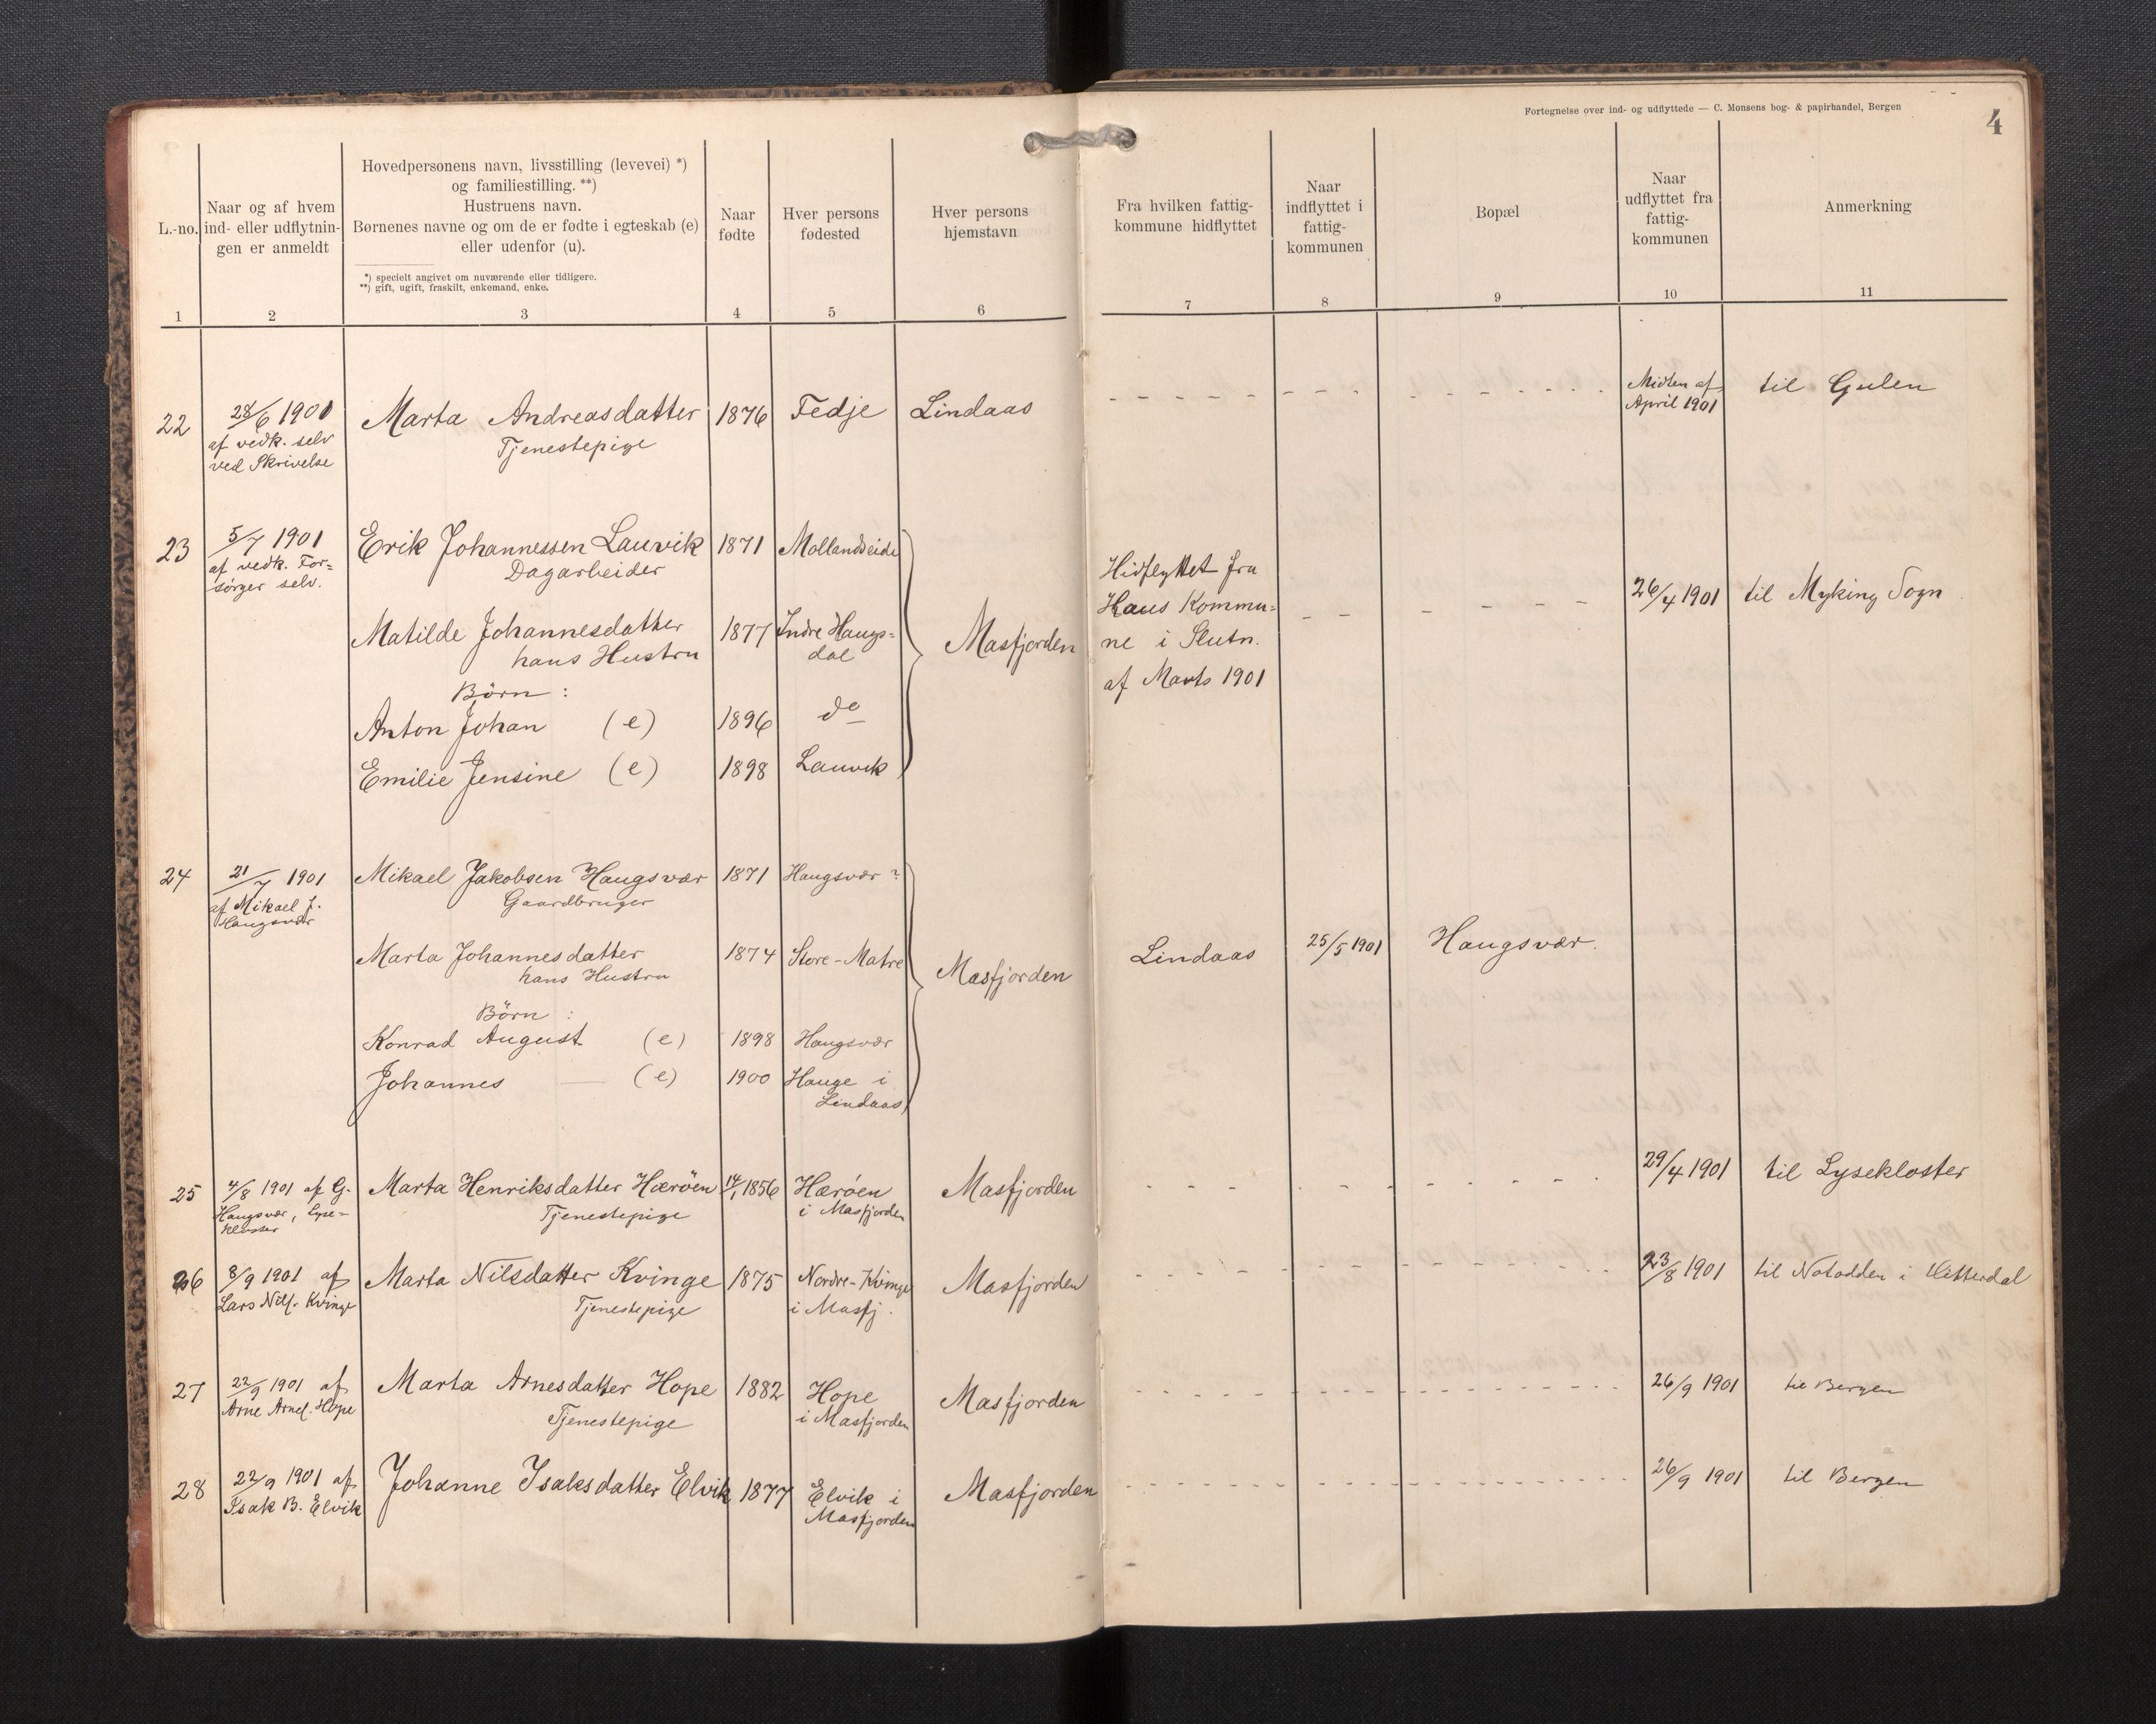 Fortegnelse over ind- og udflyttede — C. Monsens bog- & papirhandel, Bergen
4
L.-no.
Naar og af hvem
ind- eller udflytnin-
gen er anmeldt
Hovedpersonens navn, livsstilling (levevei) *)
og familiestilling. **)
Hustruens navn.
Børnenes navne og om de er fødte i egteskab (e)
eller udenfor (u).
*) specielt angivet om nuværende eller tidligere.
**) gift, ugift, fraskilt, enkemand, enke.
Naar
fødte
Hver persons
fødested
Hver persons
hjemstavn
Fra hvilken fattig-
kommune hidflyttet
Naar
indflyttet i
fattig-
kommunen
Bopæl
Naar
udflyttet fra
fattig-
kommunen
Anmerkning
1 2 3 4 5 6 7 8 9 10 11
22
28/6 1901
af vedk. selv
ved Skrivelse
Marta Andreasdatter
Tjenestepige
1876
Fedje
Lindaas
Midten af
April 1901
til Gulen
23
5/7 1901
af vedk. For=
sørger selv.
Erik Johannessen Lauvik
Dagarbeider
1871
Mollandseide
Matilde Johannesdatter
hans Hustru
1877
Indre Haugs=
dal
Børn :
Anton Johan (e)
1896
do
Emilie Jensine (e)
1898
Lauvik
Masfjorden
Hidflyttet fra
Haus Kommu=
ne i Slutn.
af Marts 1901
26/4 1901
til Myking Sogn
24
21/7 1901
af Mikael J.
Haugsvær
Mikael Jakobsen Haugsvær
Gaardbruger
1871
Haugsvær ?
Marta Johannesdatter
hans Hustru
1874
Store-Matre
Børn :
Konrad August (e)
1898
Haugsvær
Johannes — (e)
1900
Hauge i
Lindaas
Masfjorden
Lindaas
25/5 1901
Haugsvær.
25
4/8 1901 af G.
Haugsvær, Lyse=
kloster
Marta Henriksdatter Hærøen
Tjenestepige
14/1 1856
Hærøen
i Masfjorden
Masfjorden
29/4 1901
til Lysekloster
26
8/9 1901 af
Lars Nils. Kvinge
Marta Nilsdatter Kvinge
Tjenestepige
1875
Nordre-Kvinge
i Masfj.
Masfjorden
23/8 1901
til Notodden i Hitterdal
27
22/9 1901 af
Arne Arnes. Hope
Marta Arnesdatter Hope
Tjenestepige
1882
Hope
i Masfjorden
Masfjorden
26/9 1901
til Bergen
28
22/9 1901 af
Isak B. Elvik
Johanne Isaksdatter Elvik
1877
Elvik i
Masfjorden
Masfjorden
26/9 1901
til Bergen